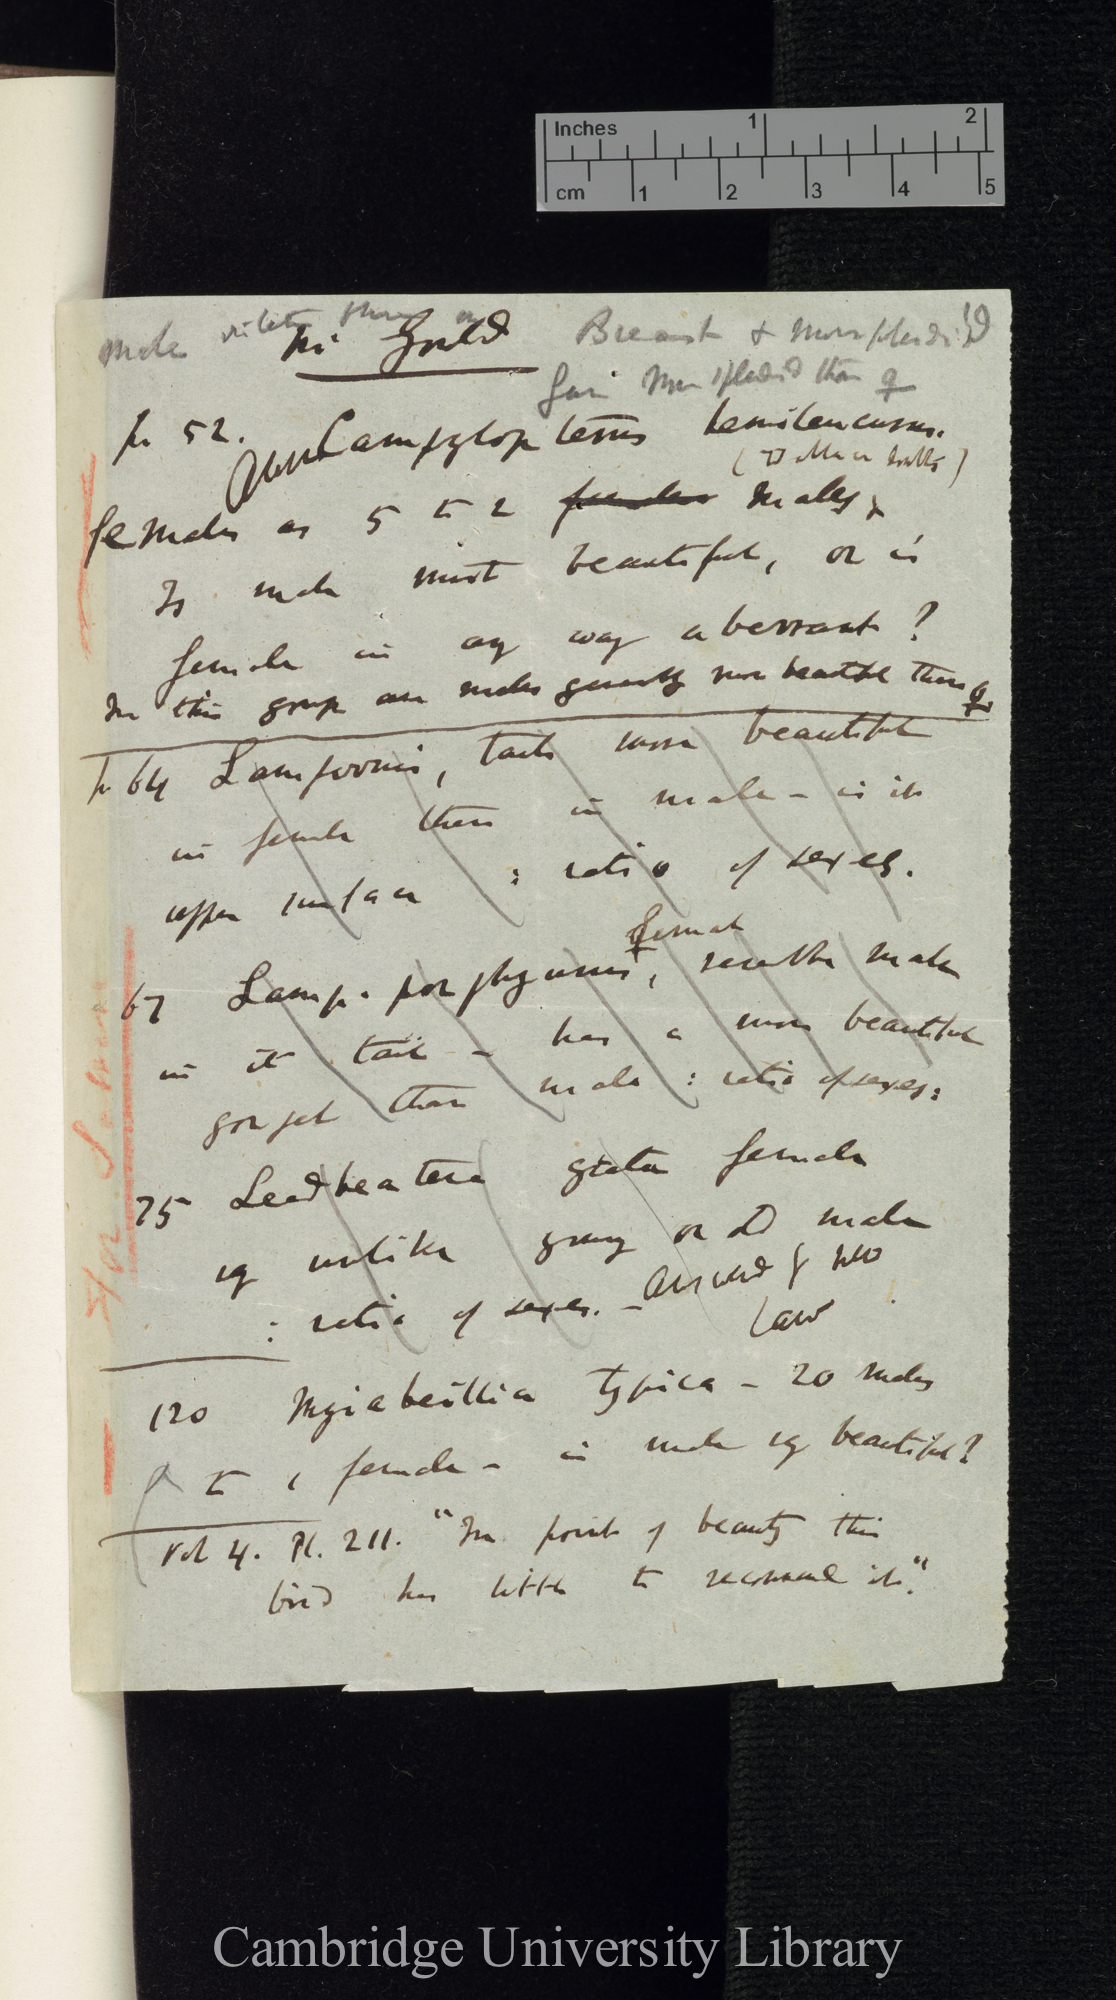 Inches 1 2
cm 1 2 3 4 5
Male violet
Mr Gould
Breast & more splendid
more splendid than ♀
p 52. Campylopterus hemileucurus.
females as 5 to 2 females males,
Is male most beautiful, or is
female in any way aberrant?
In this group are males generally more beautiful than ♀
p 64 Lampornis, tail more beautiful
in female than in male – is it
upper surface : ratio of sexes.
female
67 Lamp. porphyrurus ♀, resembles male
in its tail – has a more beautiful
gorget than male : ratio of sexes:
75 Leadbeatera grata female
is unlike young or old male
: ratio of sexes. – answered by new
law
120 Myiabeillia typica – 20 males
to 1 female – is male very beautiful?
Vol 4. Pl. 211. "In point of beauty this
bird has little to recommend it".
For Salvin
Cambridge University Library